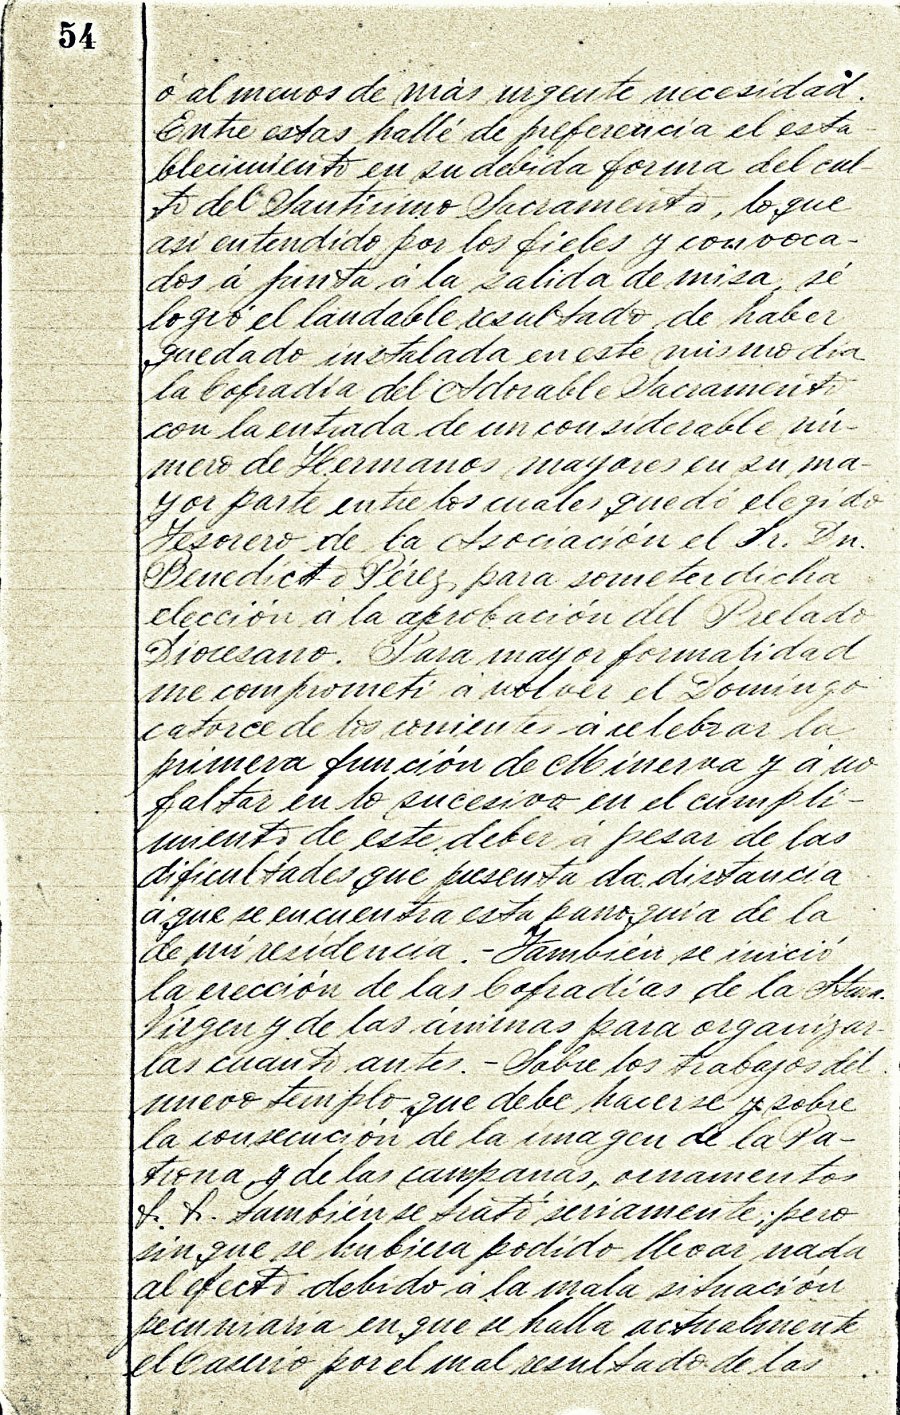 54
ó al menos de más urgente necesidad.
Entre estas hallé de preferencia el esta-
blecimiento en su debida forma del cul-
to del Santísimo Sacramento, lo que
así entendido por los fieles y convoca-
dos á junta á la salida de misa, sé
logró el laudable resultado de haber
quedado instalada en este mismo día
la Cofradía del Adorable Sacramento
con la entrada de un considerable nú-
mero de Hermanos mayores en su ma-
yor parte entre los cuales quedó elegido
Tesorero de la Asociación el Sr. Dn.
Benedicto Pérez, para someter dicha
elección á la aprobación del Prelado
Diocesano. Para mayor formalidad
me comprometí á volver el Domingo
catorce de los corrientes á celebrar la
primera función de Minerva y á no
faltar en lo sucesivo en el cumpli-
miento de este deber á pesar de las
dificultades que presenta da distancia
á que se encuentra esta parroquia de la
de mi residencia. - También se inició
la erección de las Cofradías de la Stma.
Virgen y de las ánimas para organizar-
las cuanto antes. - Sobre los trabajos del
nuevo templo que debe hacerse y sobre
la consecución de la imagen de la Pa-
trona, y de las campanas, ornamentos
&. &. también se trató seriamente; pero
sin que se hubiera podido llevar nada
al efecto debido á la mala situación
pecuniaria en que se halla actualmente
el Caserío por el mal resultado de las